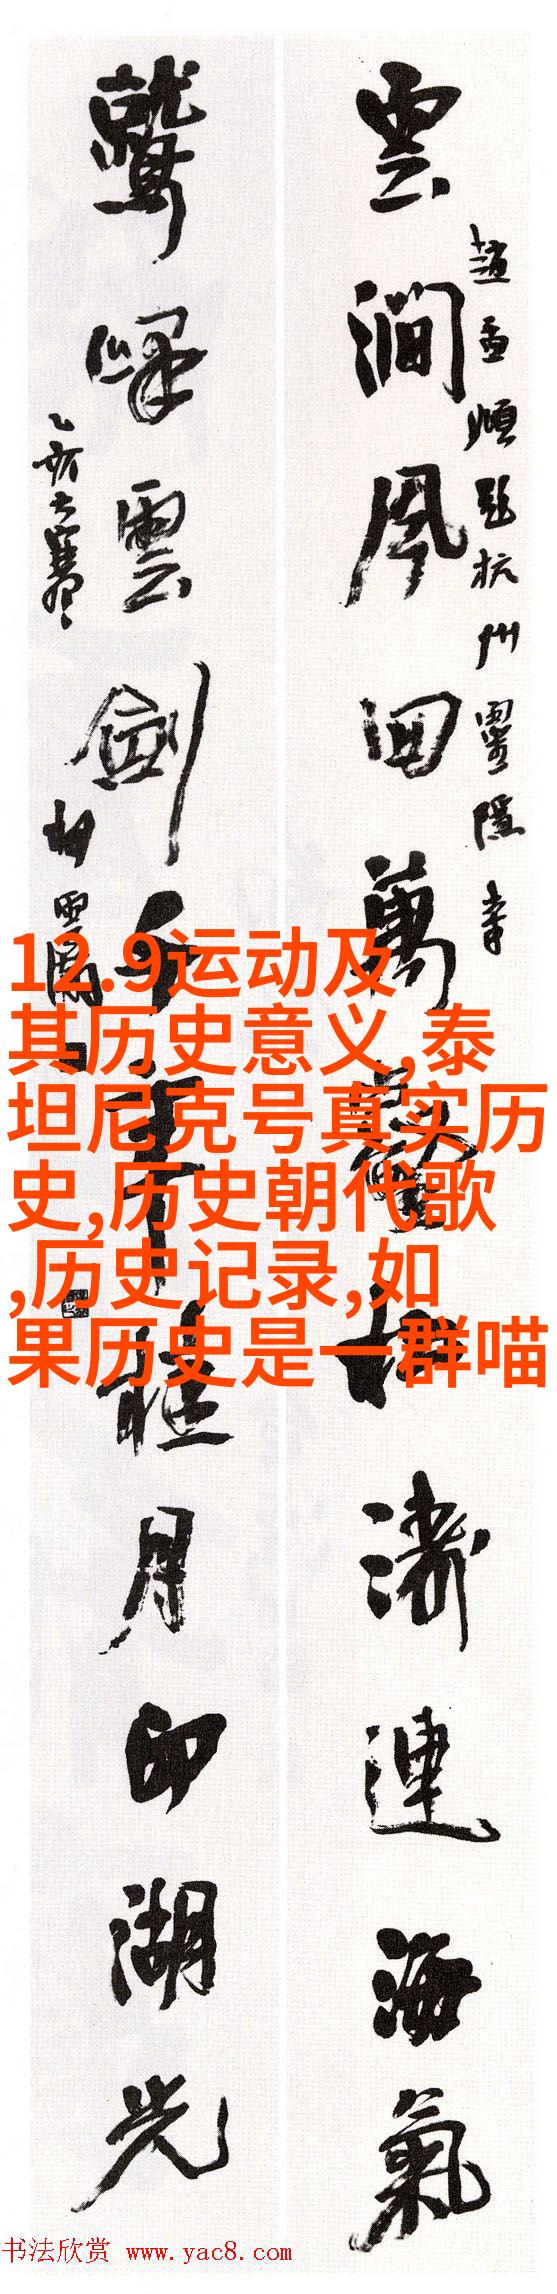 雲澗風回萬壑松濤連海氣
趙孟頫題杭州靈隱寺
鷲峰雲劍千年桂月印湖光
乙亥大寒
12.9运动及
其历史意义,泰
坦尼克号真实历
史,历史朝代歌
,历史记录,如
果历史是一群喵
书法欣赏 www.yac8.com